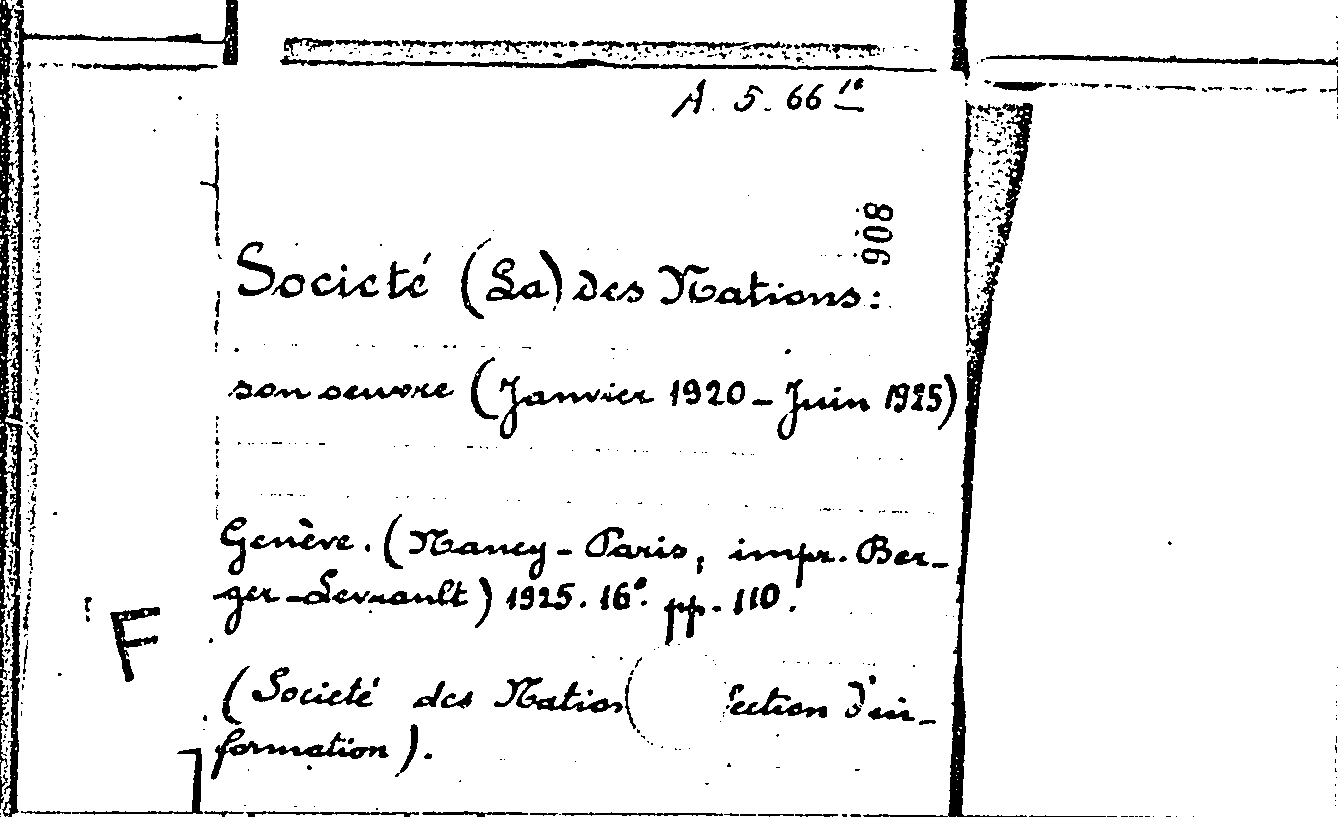 A. 5. 66 16
908
Societé (La) des Nations:
son oeuvre (Janvier 1920 - Juin 1925)
Genève. (Nancy - Paris, impr. Ber-
ger-Levrault) 1925. 16°. pp. 110.
F
(Societé des Nation ection d'in-
formation).